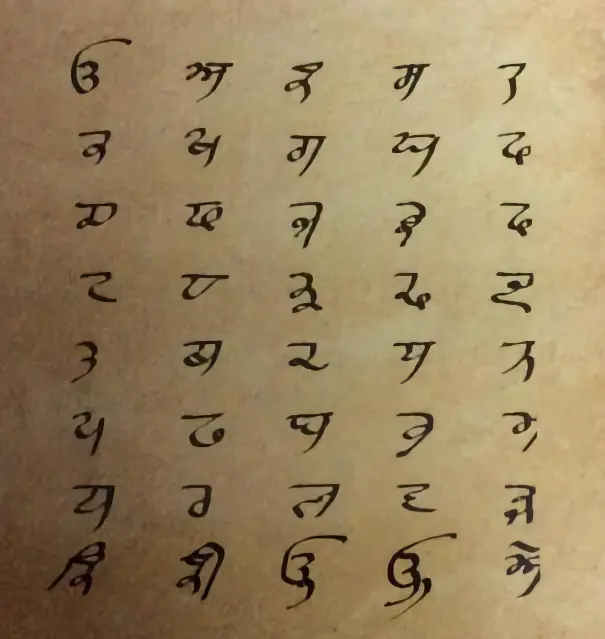 ੳ ਅ ੲ ਸ ਹ
ਕ ਖ ਗ ਘ ਙ
ਚ ਛ ਜ ਝ ਞ
ਟ ਠ ਡ ਢ ਣ
ਤ ਥ ਦ ਧ ਨ
ਪ ਫ ਬ ਭ ਮ
ਯ ਰ ਲ ਵ ੜ
ਇ ਈ ਉ ਊ